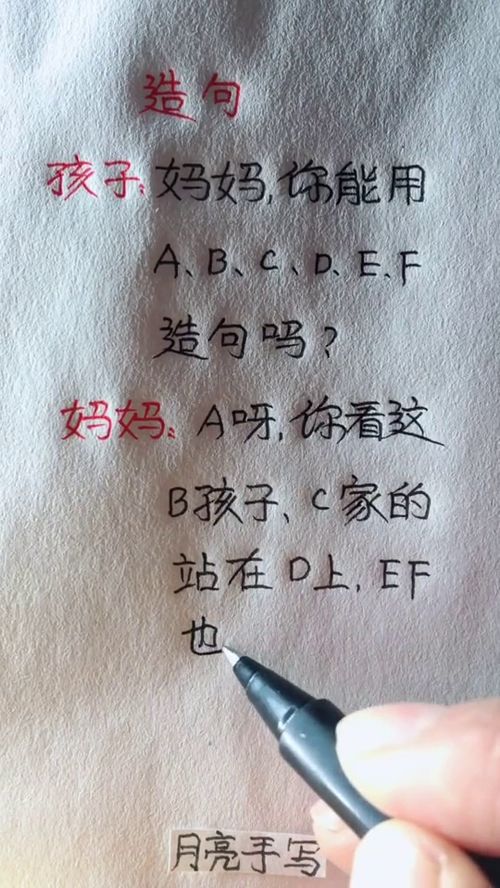 造句
孩子:妈妈,你能用
A、B、C、D、E、F
造句吗?
妈妈:A呀,你看这
B孩子、C家的
站在D上,EF
也
月亮手写